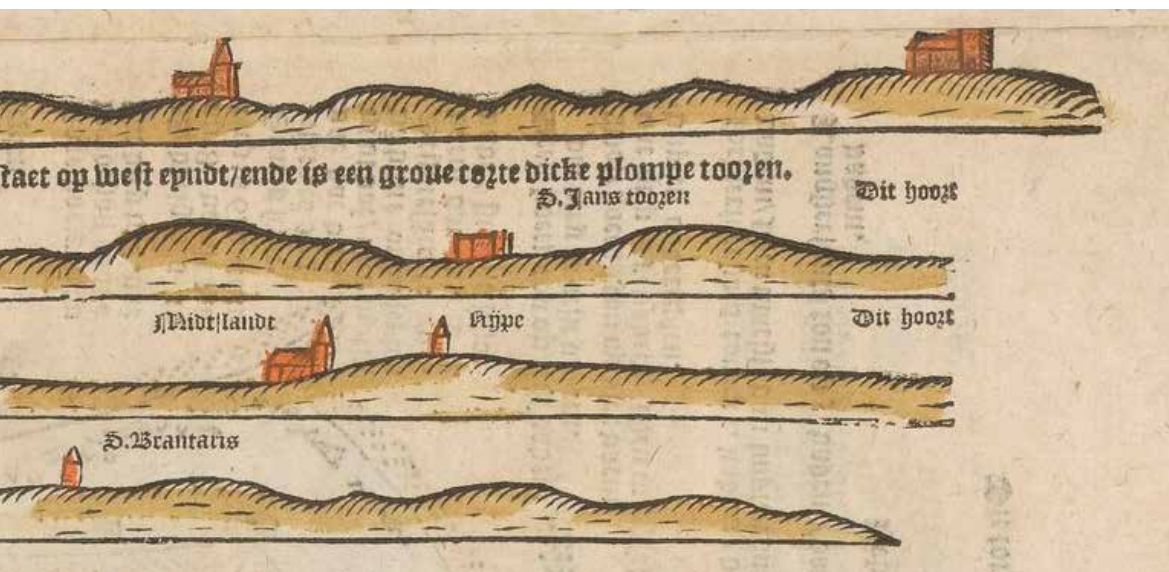 staet op west eyndt/ende is een groue corte dicke plompe tooren.
S.Jans tooren Dit hoort
Midtslandt Kijpe Dit hoort
S.Brantaris